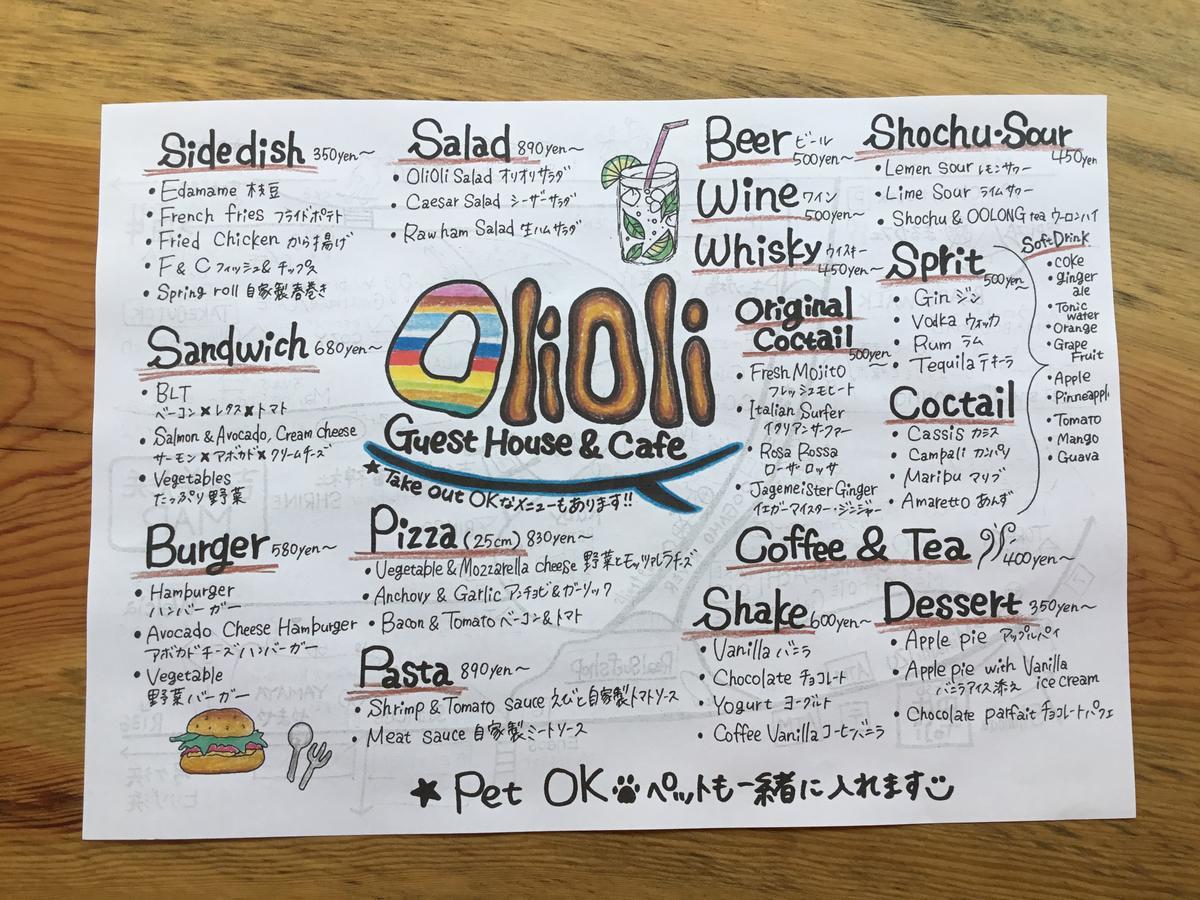 Sidedish 350yen〜
・Edamame 枝豆
・French fries フライドポテト
・Fried Chicken から揚げ
・F & C フィッシュ& チップス
・Spring roll 自家製春巻き
Sandwich 680yen〜
・BLT
ベーコン×レタス×トマト
・Salmon & Avocado, Cream cheese
サーモン×アボカド×クリームチーズ
・Vegetables
たっぷり野菜
Burger 580yen〜
・Hamburger
ハンバーガー
・Avocado Cheese Hamburger
アボカドチーズハンバーガー
・Vegetable
野菜バーガー
Salad 890yen〜
・OliOli Salad オリオリサラダ
・Caesar Salad シーザーサラダ
・Rawham Salad 生ハムサラダ
OliOli
Guest House & Cafe
★Take out OKなメニューもあります!!
Pizza (25cm) 830yen〜
・Vegetable & Mozzarella cheese 野菜とモッツァレラチーズ
・Anchovy & Garlic アンチョビ&ガーリック
・Bacon & Tomato ベーコン&トマト
Pasta 890yen〜
・Shrimp & Tomato sauce えびと自家製トマトソース
・Meat sauce 自家製ミートソース
Beer ビール
500yen〜
Wine ワイン
500yen〜
Whisky ウイスキー
450yen〜
Original
Coctail
500yen
・Fresh Mojito
フレッシュモヒート
・Italian Surfer
イタリアンサーファー
・Rosa Rossa
ローザ・ロッサ
・Jagemeister Ginger
イエガーマイスター・ジンジャー
Shochu・Sour
450yen
・Lemen sour レモンサワー
・Lime Sour ライムサワー
・Shochu & OOLONG tea ウーロンハイ
Sprit
500yen
・Gin ジン
・Vodka ウォッカ
・Rum ラム
・Tequila テキーラ
Coctail
・Cassis カシス
・Campali カンパリ
・Maribu マリブ
・Amaretto あんず
SoftDrink
・coke
・ginger
ale
・Tonic
water
・Orange
・Grape
Fruit
・Apple
・Pinneappl
・Tomato
・Mango
・Guava
Coffee & Tea 400yen〜
Shake 600yen〜
・Vanilla バニラ
・Chocolate チョコレート
・Yogurt ヨーグルト
・Coffee Vanilla コーヒーバニラ
Dessert 350yen〜
・Apple pie アップルパイ
・Apple pie with Vanilla
バニラアイス添え ice cream
・Chocolate parfait チョコレートパフェ
★ Pet OK ペットも一緒に入れます